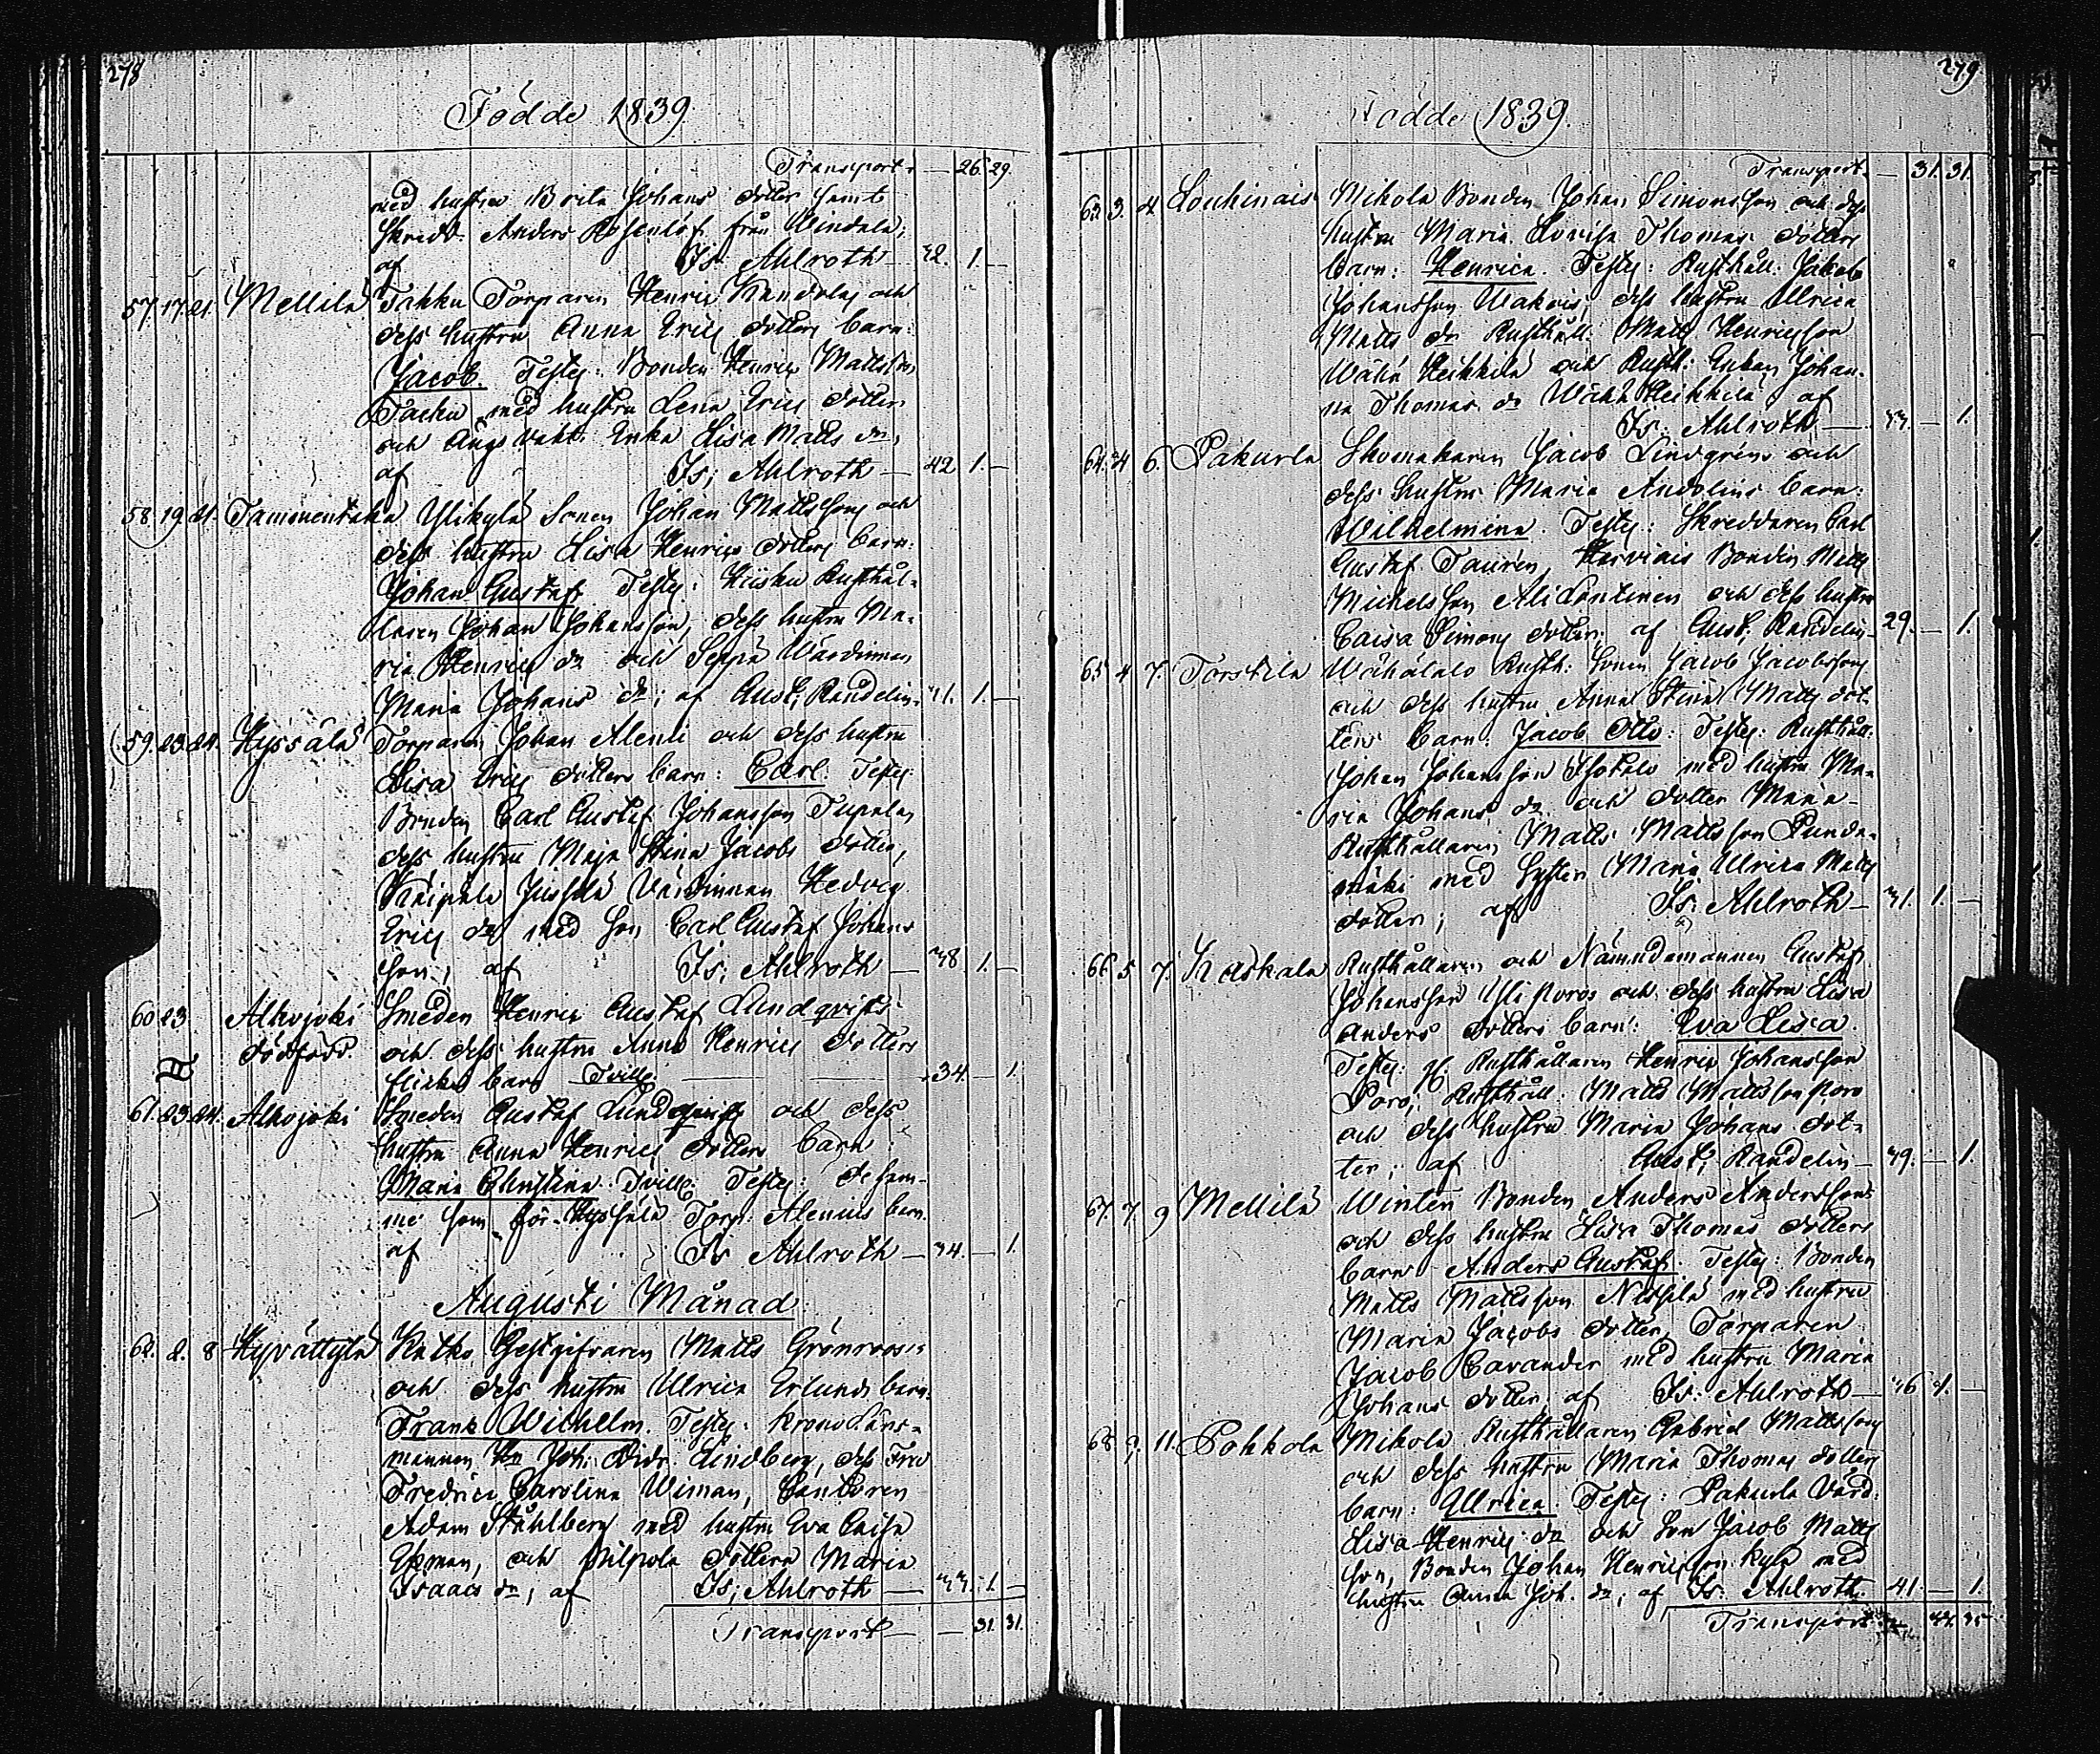 278
Födde 1839
Transport — 26. 29.
med hustru Brita Johans dotter samt
Skredd. Anders Rosenlöf från Windala;
af Is: Ahlroth — 42. 1. —
57. 17. 21. Mellilä Takku Torparen Henric Randelas och
dess hustru Anna Erics dotters barn:
Jacob. Testes: Bonden Henric Mattsson
Tacku med hustru Lena Erics dotter
och Ängsvakt. Enka Lisa Matts dr,
af Is; Ahlroth — 42 1. —
58. 19. 21. Tammentaka Ylikylä Sonen Johan Mattssons och
dess hustru Lisa Henrics dotters barn:
Johan Gustaf. Testes: Hiisku Rusthål-
laren Johan Johansson, dess hustru Ma-
ria Henrics dr och Seppä Wärdinnan
Maria Johans dr; af Gust; Randelin. 41. 1. —
59. 23. 24. Hyssälä Torparen Johan Alenii och dess hustru
Lisa Erics dotters barn: Carl. Testes:
Bonden Carl Gustaf Johansson Tupala,
dess hustru Maja Stina Jacobs dotter,
Räipälä Jussila Värdinnan Hedvig
Erics dr med son Carl Gustaf Johans
son; af Is; Ahlroth — 38 1. —
60 23 Alhojoki Smeden Henric Gustaf Lundqvists
dödfödd. och dess hustru Anna Henrics dotters
flicke barn Tvill: — 34. — 1.
61. 23. 24. Alhojoki Smeden Gustaf Lundqvists och dess
hustru Anna Henrics dotters barn
Maria Christina. Tvill. Testes: de sam-
me som för Hyssälä Torp: Alenius barn.
af Is Ahlroth — 34. — 1.
Augusti Månad
62. 2. 8 Hyvättylä Katko Gestgifvaren Matts Grönroos's
och dess hustru Ulrica Erlunds barn.
Frans Wilhelm. Testes: Krono Läns-
mannen Hr Joh: Didr: Lindberg, dess Fru
Fredrica Carolina Wiman, Cantoren
Adam Ståhlberg med hustru Eva Caisa
Ekman, och Pilpola dottern Maria
Isaacs dr, af Is; Ahlroth — 33. 1. —
Transport — — 31. 31.
279
Födde 1839.
Transport — 31. 31.
63. 3. 4 Louhinais Mikola Bonden Johan Simonsson och dess
hustru Maria Lovisa Thomas dotters
barn: Henrica. Testes: Rusthåll: Jakob
Johansson Wakois, dess hustru Ullrica
Matts dr Rusthåll: Matts Henricsson
Wähä Heikkilä och Rusth: Enkan Johan-
na Thomas dr Wähä Heikkilä; af
Is: Ahlroth — 33. — 1.
64. 4 6. Pakurla Skomakaren Jacob Lindgréns och
dess hustru Maria Andelins barn:
Wilhelmina. Testes: Skreddaren Carl
Gustaf Taurén, Hirviais Bonden Matts
Michelsson Ali Lontinen och dess hustru
Caisa Simons dotter; af Gust; Randelin — 29. — 1.
65 4 7. Torstila Wähätalo Rusth: Sonen Jacob Jacobssons
och dess hustru Anna Stina Matts dot-
ters barn: Jacob Otto: Testes: Rusthåll:
Johan Johansson Isotalo med hustru Ma-
ria Johans dr och dotter Maria —
Rusthållaren Matts Mattsson Punda-
mäki med Syster Maria Ullrica Matts
dotter; af Is: Ahlroth — 31. 1. —
66. 5 7. Raskala Rusthållaren och Nämndemannen Gustaf
Johansson Yli Poros och dess hustru Lisa
Anders dotters barn: Eva Lisa.
Testes: Rusthållaren Henric Johansson
Poro, Rusthåll: Matts Mattsson Poro
och dess hustru Maria Johans dot-
ter; af Gust; Randelin — 39. — 1.
67. 7 9 Mellilä Winten Bonden Anders Anderssons
och dess hustru Lisa Thomas dotters
barn Anders Gustaf. Testes: Bonden
Matts Mattsson Nissilä med hustru
Maria Jacobs dotter, Torparen
Jacob Cavander med hustru Maria
Johans dotter, af Is: Ahlroth — 36 1. —
68 9. 11. Pohkola Mikola Rusthållaren Gabriel Mattssons
och dess hustru Maria Thomas dotters
barn: Ullrica. Testes: Pakurla Värd:
Lisa Henrics dr och Son Jacob Matts
son, Bonden Johan Henricsson Kylä med
hustru Anna Joh. dr; af Is: Ahlroth. 41. — 1.
Transport 35